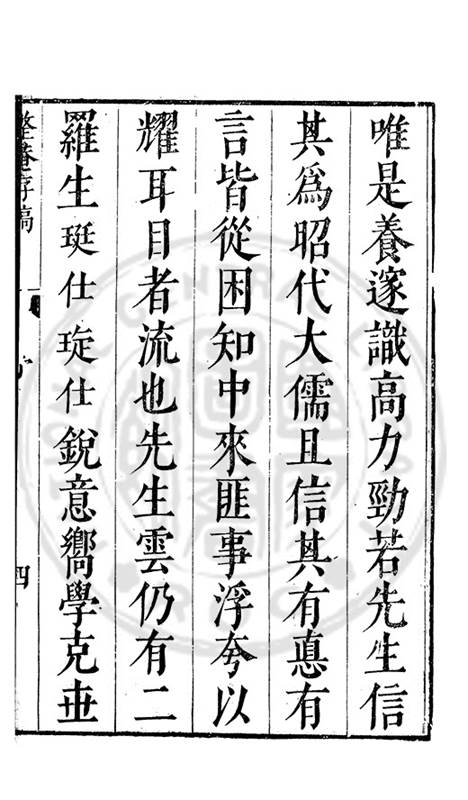 唯是養邃識高力勁若先生信
其爲昭代大儒且信其有悳有
言皆從困知中來匪事浮夸以
耀耳目者流也先生雲仍有二
羅生珽仕琁仕銳意嚮學克世
整菴存稿
四